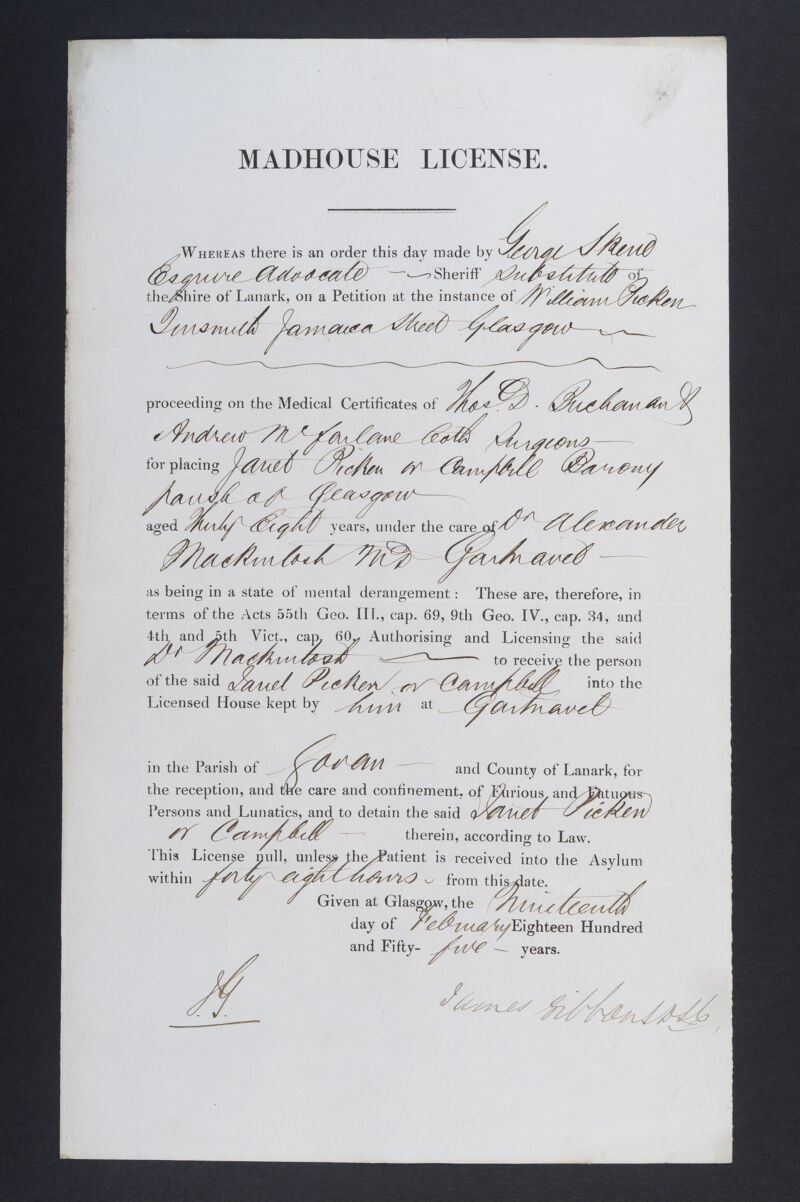 MADHOUSE LICENSE.
WHEREAS there is an order this day made by George Skene
Esquire Advocate Sheriff Substitute of
the Shire of Lanark, on a Petition at the instance of William Picken
Tinsmith Jamaica Street Glasgow
proceeding on the Medical Certificates of Thos. D. Buchanan &
Andrew Mc farlane both Surgeons
for placing Janet Picken or Campbell Barony
parish of Glasgow
aged Thirty Eight years, under the care of Dr Alexander
Mackintosh MD Gartnavel
as being in a state of mental derangement: These are, therefore, in
terms of the Acts 55th Geo. III., cap. 69, 9th Geo. IV., cap. 34, and
4th and 5th Vict., cap. 60, Authorising and Licensing the said
Dr Mackintosh to receive the person
of the said Janet Picken or Campbell into the
Licensed House kept by him at Gartnavel
in the Parish of Govan and County of Lanark, for
the reception, and the care and confinement, of Furious and Fatuous
Persons and Lunatics, and to detain the said Janet Picken
or Campbell therein, according to Law.
This License null, unless the Patient is received into the Asylum
within forty eight hours from this date.
Given at Glasgow, the Nineteenth
day of February Eighteen Hundred
and Fifty-five years.
J.G.
James Gibbons